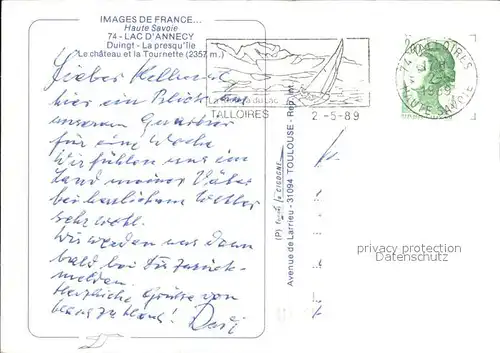 IMAGES DE FRANCE...
Haute Savoie
74 - LAC D'ANNECY
Duingt - La presqu'île
Le château et la Tournette (2357 m.)
Lieber
hier ein Blick
unserem Quartier
für eine Woche
Wir fühlen uns im
Land meiner Väter
bei herrlichem Wetter
sehr wohl.
Wir werden uns dann
bald bei Dir zurück-
melden.
Herzliche Grüße von
Haus zu Haus!
TALLOIRES
2-5-89
74 TALLOIRES
1989
HAUTE SAVOIE
(P)
la CIGOGNE
Avenue de Larrieu - 31094 TOULOUSE - Rep. Int.
privacy protection
Datenschutz